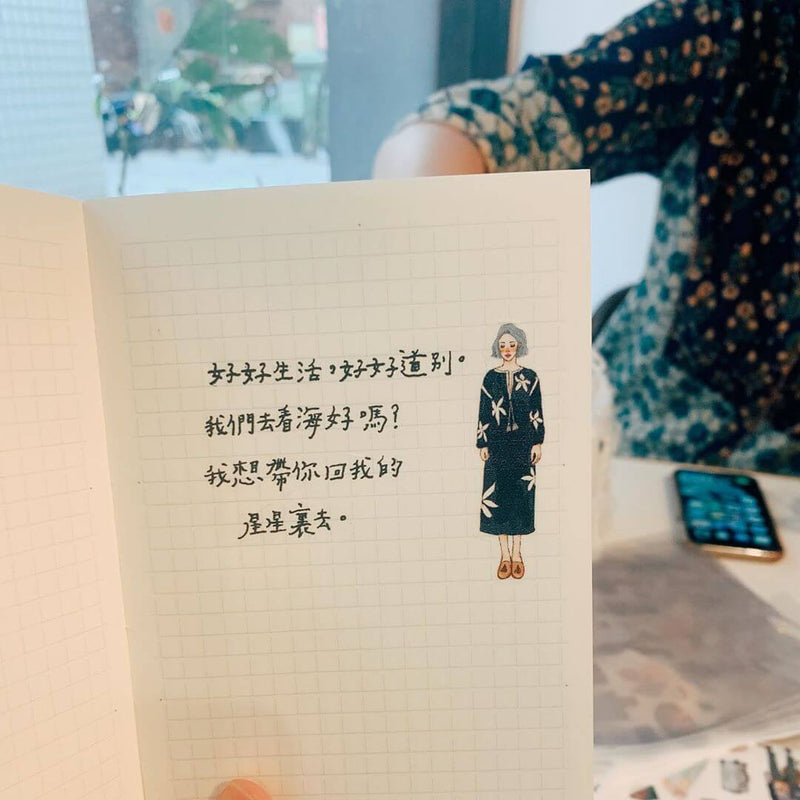 好好生活，好好道别。
我們去看海好嗎？
我想帶你回我的
星星裏去。